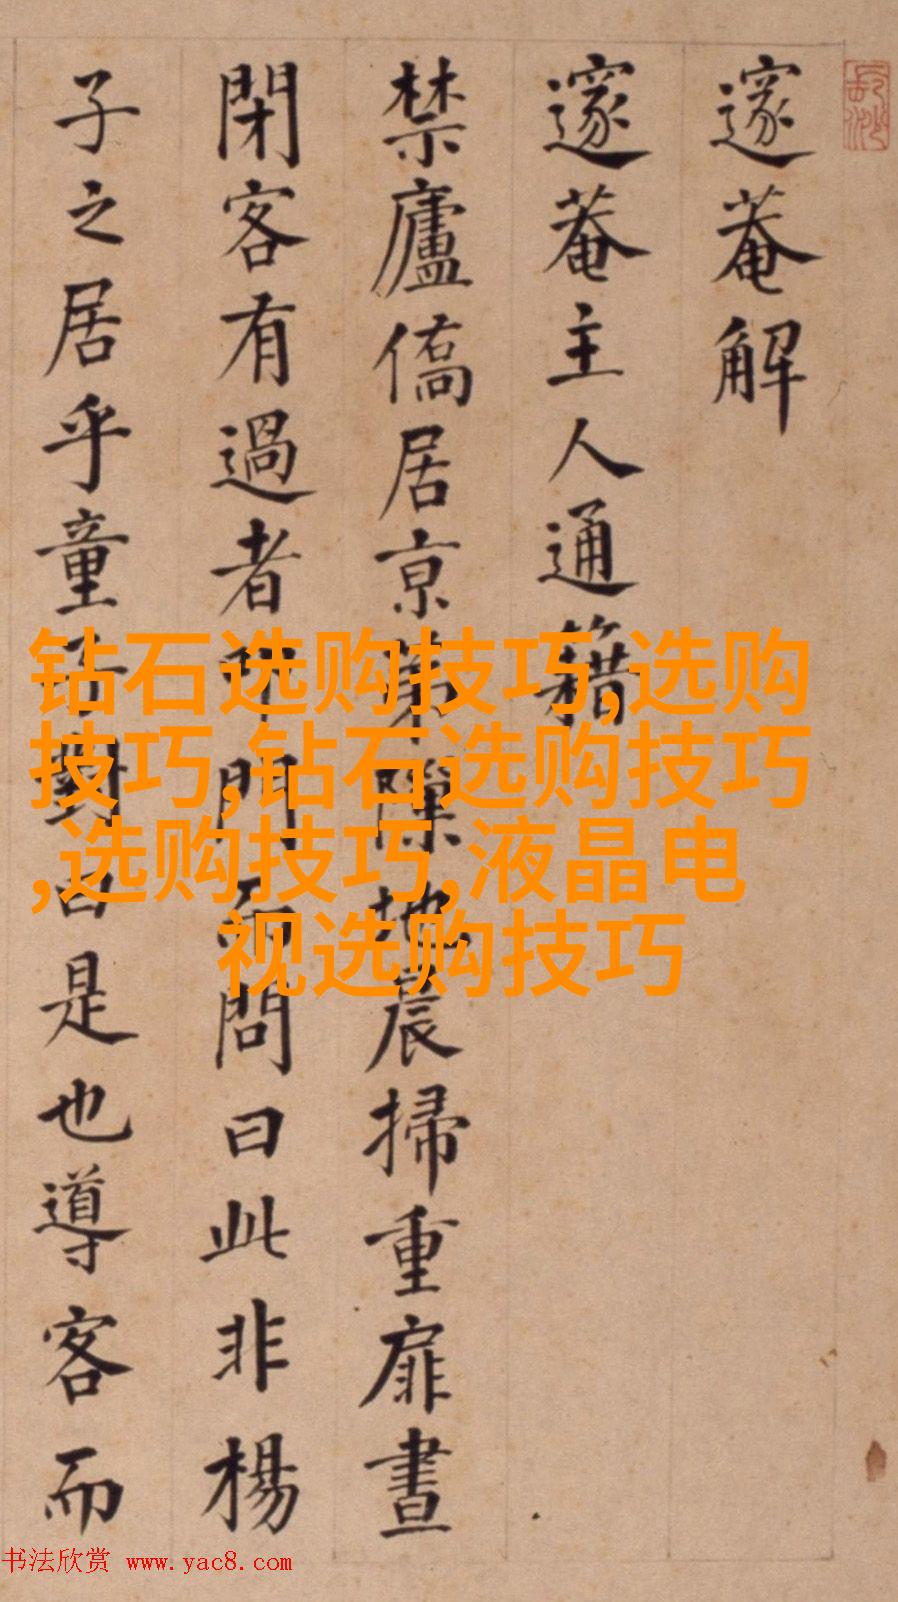 邃菴解
邃菴主人通籍
禁廬僑居京第隙地晨掃重扉晝
閉客有過者叩門而問曰此非楊
子之居乎童子對曰是也導客而
钻石选购技巧,选购
技巧,钻石选购技巧
,选购技巧,液晶电
视选购技巧
书法欣赏 www.yac8.com